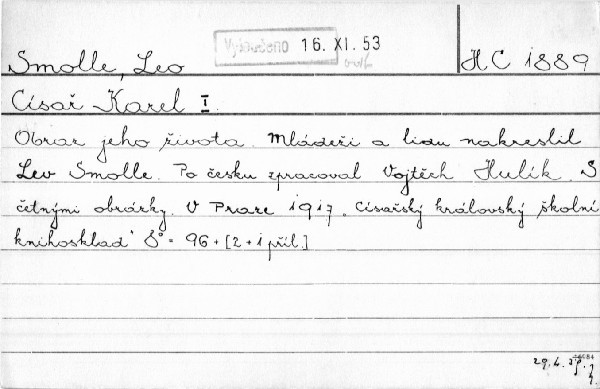 Vyloučeno 16. XI. 53
Smolle, Leo
H C 1889
Císař Karel I.
Obraz jeho života. Mládeži a lidu nakreslil
Lev Smolle. Po česku zpracoval Vojtěch Hulík. S
četnými obrázky. V Praze 1917. Císařský královský školní
knihosklad. 8° 96 + [2 + 1 příl.]
29. 4.